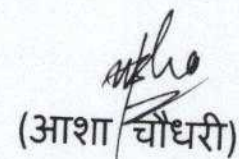 (आशा चौधरी)